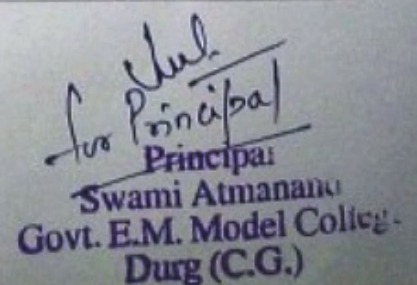 for Principal
Principal
Swami Atmanand
Govt. E.M. Model College
Durg (C.G.)